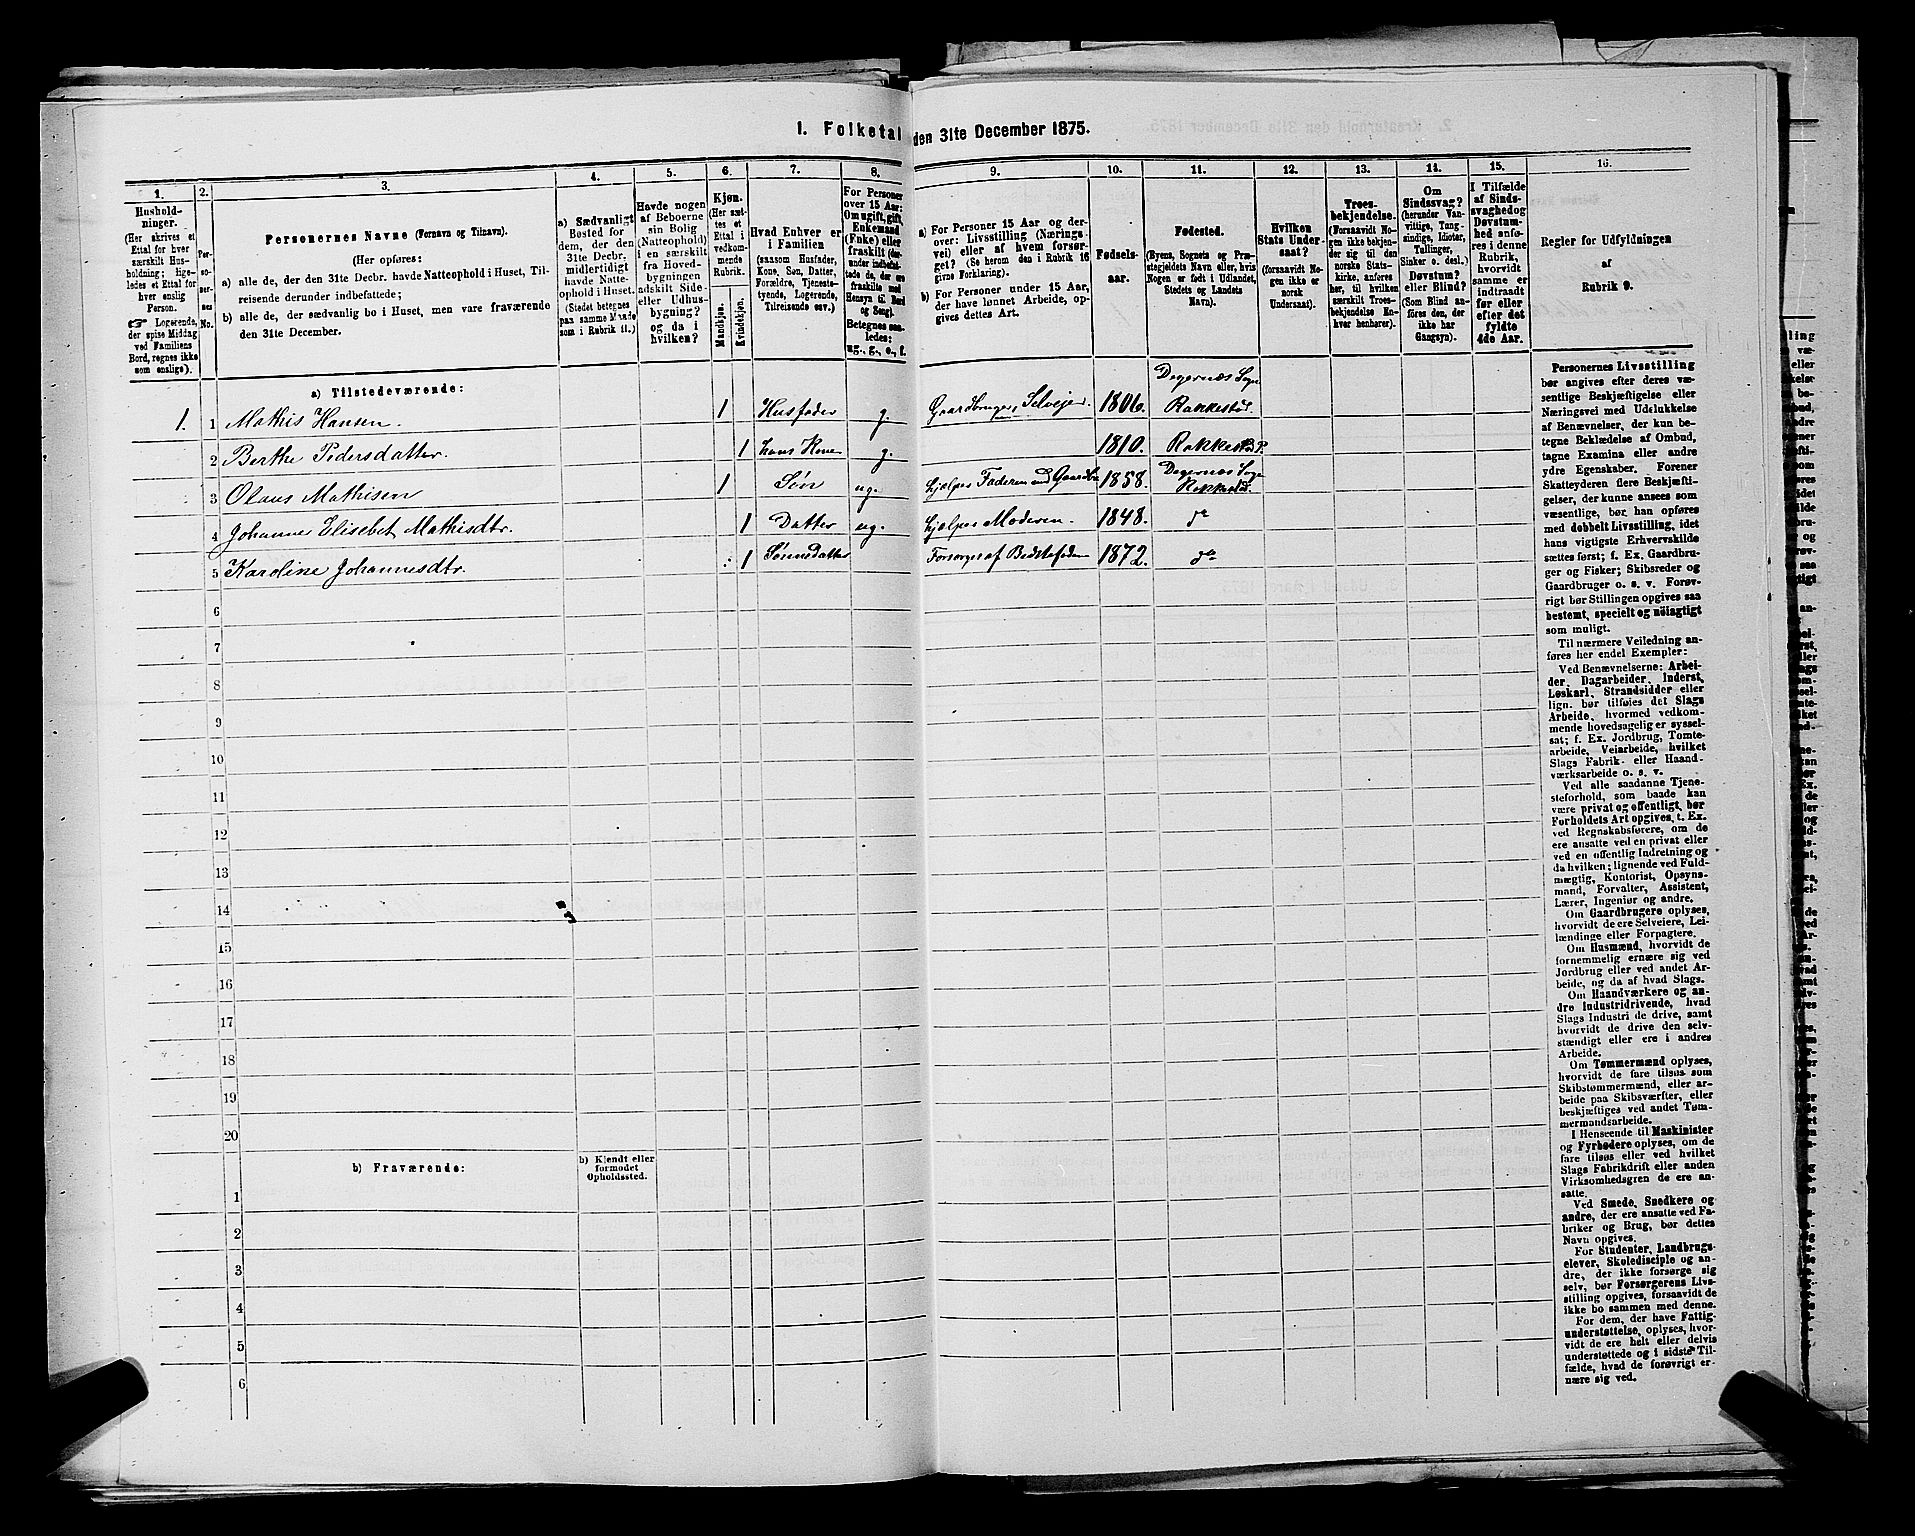 1. Folketal den 31te December 1875.
1.
2.
3.
4.
5.
6.
7.
8.
9.
10.
11.
12.
13.
14.
15.
16.
Husholdninger.
(Her skrives et
Ettal for hver
særskilt Husholdning;
ligeledes et Ettal for
hver enslig
Person.
☞ Logerende,
der spise Middag
ved Familiens
Bord, regnes ikke
som enslige).
Personernes No.
Personernes Navne (Fornavn og Tilnavn).
(Her opføres:
a) alle de, der den 31te Decbr. havde Natteophold i Huset, Tilreisende derunder indbefattede;
b) alle de, der sædvanlig bo i Huset, men vare fraværende
den 31te December.
a) Sædvanligt
Bosted for
dem, der den
31te Decbr.
midlertidigt
havde Natteophold i Huset.
(Stedet betegnes
paa samme Maade
som i Rubrik 11.)
Havde nogen
af Beboerne
sin Bolig
(Natteophold)
i en særskilt
fra Hovedbygningen
adskilt Side-
eller Udhusbygning?
og da i
hvilken?
Kjøn.
(Her sættes et
Ettal i
vedkommende
Rubrik.
Mandkjøn.
Kvindekjøn.
Hvad Enhver er
i Familien
(saasom Husfader,
Kone, Søn, Datter,
Forældre, Tjenestetyende, Logerende,
Tilreisende osv.)
For Personer
over 15 Aar:
Om ugift, gift,
Enkemand
(Enke) eller
fraskilt
Betegnes saaledes:
ug., g., e., f.
a) For Personer 15 Aar og derover: Livsstilling (Næringsvei) eller af hvem forsørget? (Se herom den i Rubrik 16
givne Forklaring).
b) For Personer under 15 Aar,
der have lønnet Arbeide, opgives dettes Art.
Fødselsaar.
Fødested.
(Byens, Sognets og Præstegjeldets Navn eller, hvis
Nogen er født i Udlandet,
Stedets og Landets
Navn).
Hvilken
Stats Undersaat?
(forsaavidt Nogen ikke er
norsk
Undersaat).
Troesbekjendelse.
(Forsaavidt Nogen ikke bekjender sig til den
norske Statskirke, anføres
her, til hvilken
særskilt Troesbekjendelse Enhver henhører).
Om
Sindssvag?
(herunder Vanvittige, Tungsindige, Idioter,
Tullinger,
Sinker o. desl.)
Døvstum?
eller Blind?
(Som Blind anføres den, der
ikke har
Gangsyn).
I Tilfælde
af Sindssvaghed og
Døvstumhed anføres i denne
Rubrik,
hvorvidt
samme er
indtraadt
før eller
efter det
fyldte
4de Aar.
Regler for Udfyldningen
af
Rubrik 9.
a) Tilstedeværende:
1. 1 Mathis Hansen. 1 Husfader g. Gaardbruger, Selveje. 1806. Degernæs Sogn Rakkestad.
2 Berthe Pedersdatter. 1 hans Kone g. 1810. Rakkestad P.
3 Olaus Mathisen 1 Søn ug. hjelper Faderen med Gaardbr 1858. Degernæs Sogn Rakkestad.
4 Johanne Elisebet Mathisdtr. 1 Datter ug. hjelper Moderen. 1848. do
5 Karoline Johannesdtr. 1 Sønnedatter Forsørges af Bedstefaderen 1872. do
6
7
8
9
10
11
12
13
14
15
16
17
18
19
20
b) Fraværende:
b) Kjendt eller
formodet
Opholdssted.
1
2
3
4
5
6
Personernes Livsstilling
bør angives efter deres væsentlige Beskjæftigelse eller
Næringsvei med Udelukkelse
af Benævnelser, der kun betegne Beklædelse af Ombud,
tagne Examina eller andre
ydre Egenskaber. Forener
Skatteyderen flere Beskjæftigelser, der kunne ansees som
væsentlige, bør han opføres
med dobbelt Livsstilling, idet
hans vigtigste Erhvervskilde
sættes først; f. Ex. Gaardbruger og Fisker; Skibsreder og
Gaardbruger o. s. v. Forøvrigt bør Stillingen opgives saa
bestemt, specielt og nöiagtigt
som muligt.
Til nærmere Veiledning anføres her endel Exempler:
Ved Benævnelserne: Arbeider, Dagarbeider, Inderst,
Løskarl, Strandsidder eller
lign. bør tilføies det Slags
Arbeide, hvormed vedkommende hovedsagelig er sysselsat; f. Ex. Jordbrug, Tomtearbeide, Veiarbeide, hvilket
Slags Fabrik- eller Haandværksarbeide o. s. v.
Ved alle saadanne Tjenesteforhold, som baade kan
være privat og offentligt, bør
Forholdets Art opgives, t. Ex.
ved Regnskabsførere, om de
ere ansatte ved en privat eller
ved en offentlig Indretning og
da hvilken; lignende ved Fuldmægtig, Kontorist, Opsynsmand, Forvalter, Assistent,
Lærer, Ingeniør og andre.
Om Gaardbrugere oplyses,
hvorvidt de ere Selveiere, Leilændinge eller Forpagtere.
Om Husmænd, hvorvidt de
fornemmelig ernære sig ved
Jordbrug eller ved andet Arbeide, og da af hvad Slags.
Om Haandværkere og andre Industridrivende, hvad
Slags Industri de drive, samt
hvorvidt de drive den selvstændigt eller ere i andres
Arbeide.
Om Tømmermænd oplyses,
hvorvidt de fare tilsøs som
Skibstømmermænd, eller arbeide paa Skibsværfter, eller
beskjæftiges ved andet Tømmermandsarbeide.
I Henseende til Maskinister
og Fyrbødere oplyses, om de
fare tilsøs eller ved hvilket
Slags Fabrikdrift eller anden
Virksomhedsgren de ere ansatte.
Ved Smede, Snedkere og
andre, der ere ansatte ved Fabriker og Brug, bør dettes
Navn opgives.
For Studenter, Landbrugselever, Skoledisciple og andre, der ikke forsørge sig
selv, bør Forsørgerens Livsstilling opgives, forsaavidt de
ikke bo sammen med denne.
For dem, der have Fattigunderstøttelse, oplyses, hvorvidt de ere helt eller delvis
understøttede og i sidste Tilfælde, hvad de forøvrigt ernære sig ved.